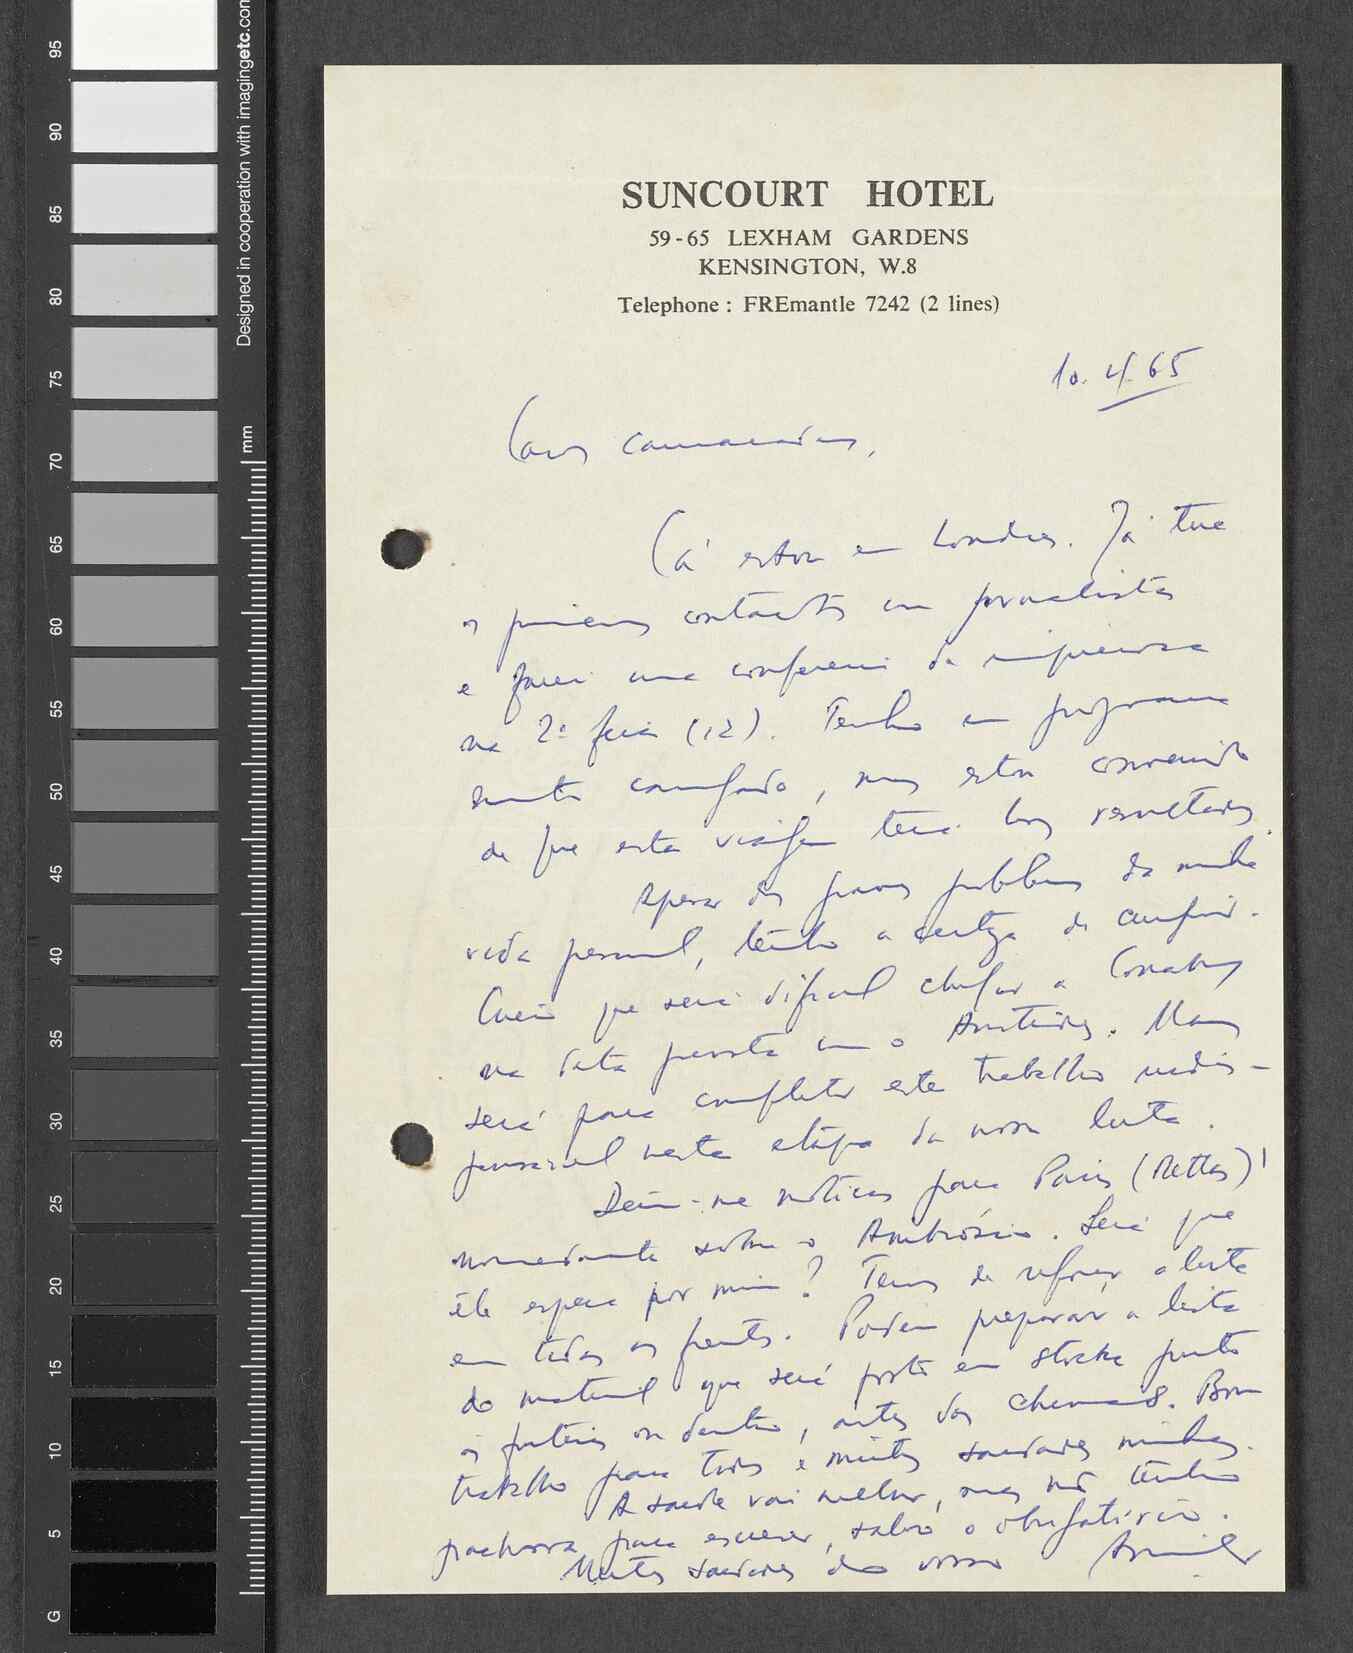 Designed in cooperation with imagingetc.com
mm
95
90
85
80
75
70
65
60
55
50
45
40
35
30
25
20
15
10
5
G
SUNCOURT HOTEL
59-65 LEXHAM GARDENS
KENSINGTON, W.8
Telephone : FREmantle 7242 (2 lines)
10.4.65
Caros camaradas,
Cá estou em Londres. Já tive
os primeiros contactos com jornalistas
e farei uma conferência de imprensa
na 2ª feira (12). Tenho um programa
muito carregado, mas estou convencido
de que esta viagem terá bons resultados.
Apesar dos graves problemas da minha
vida pessoal, tenho a certeza de cumprir.
Creio que será difícil chegar a Conakry
na data prevista com o Aristides. Mas
será para completar este trabalho indis-
pensável nesta etapa da nossa luta.
Dêem-me notícias para Paris (Mettas)!
nomeadamente sobre o Ambrósio. Será que
êle espera por mim? Temos de reforçar a luta
em todas as frentes. Podem preparar a lista
do material que será posto em stock junto
às fronteiras ou dentro, antes das chuvas. Bom
trabalho para todos e muitas saudades minhas.
A saúde vai melhor, mas não tenho
pachorra para escrever, salvo o obrigatório.
Muitas saudades do vosso Amílcar